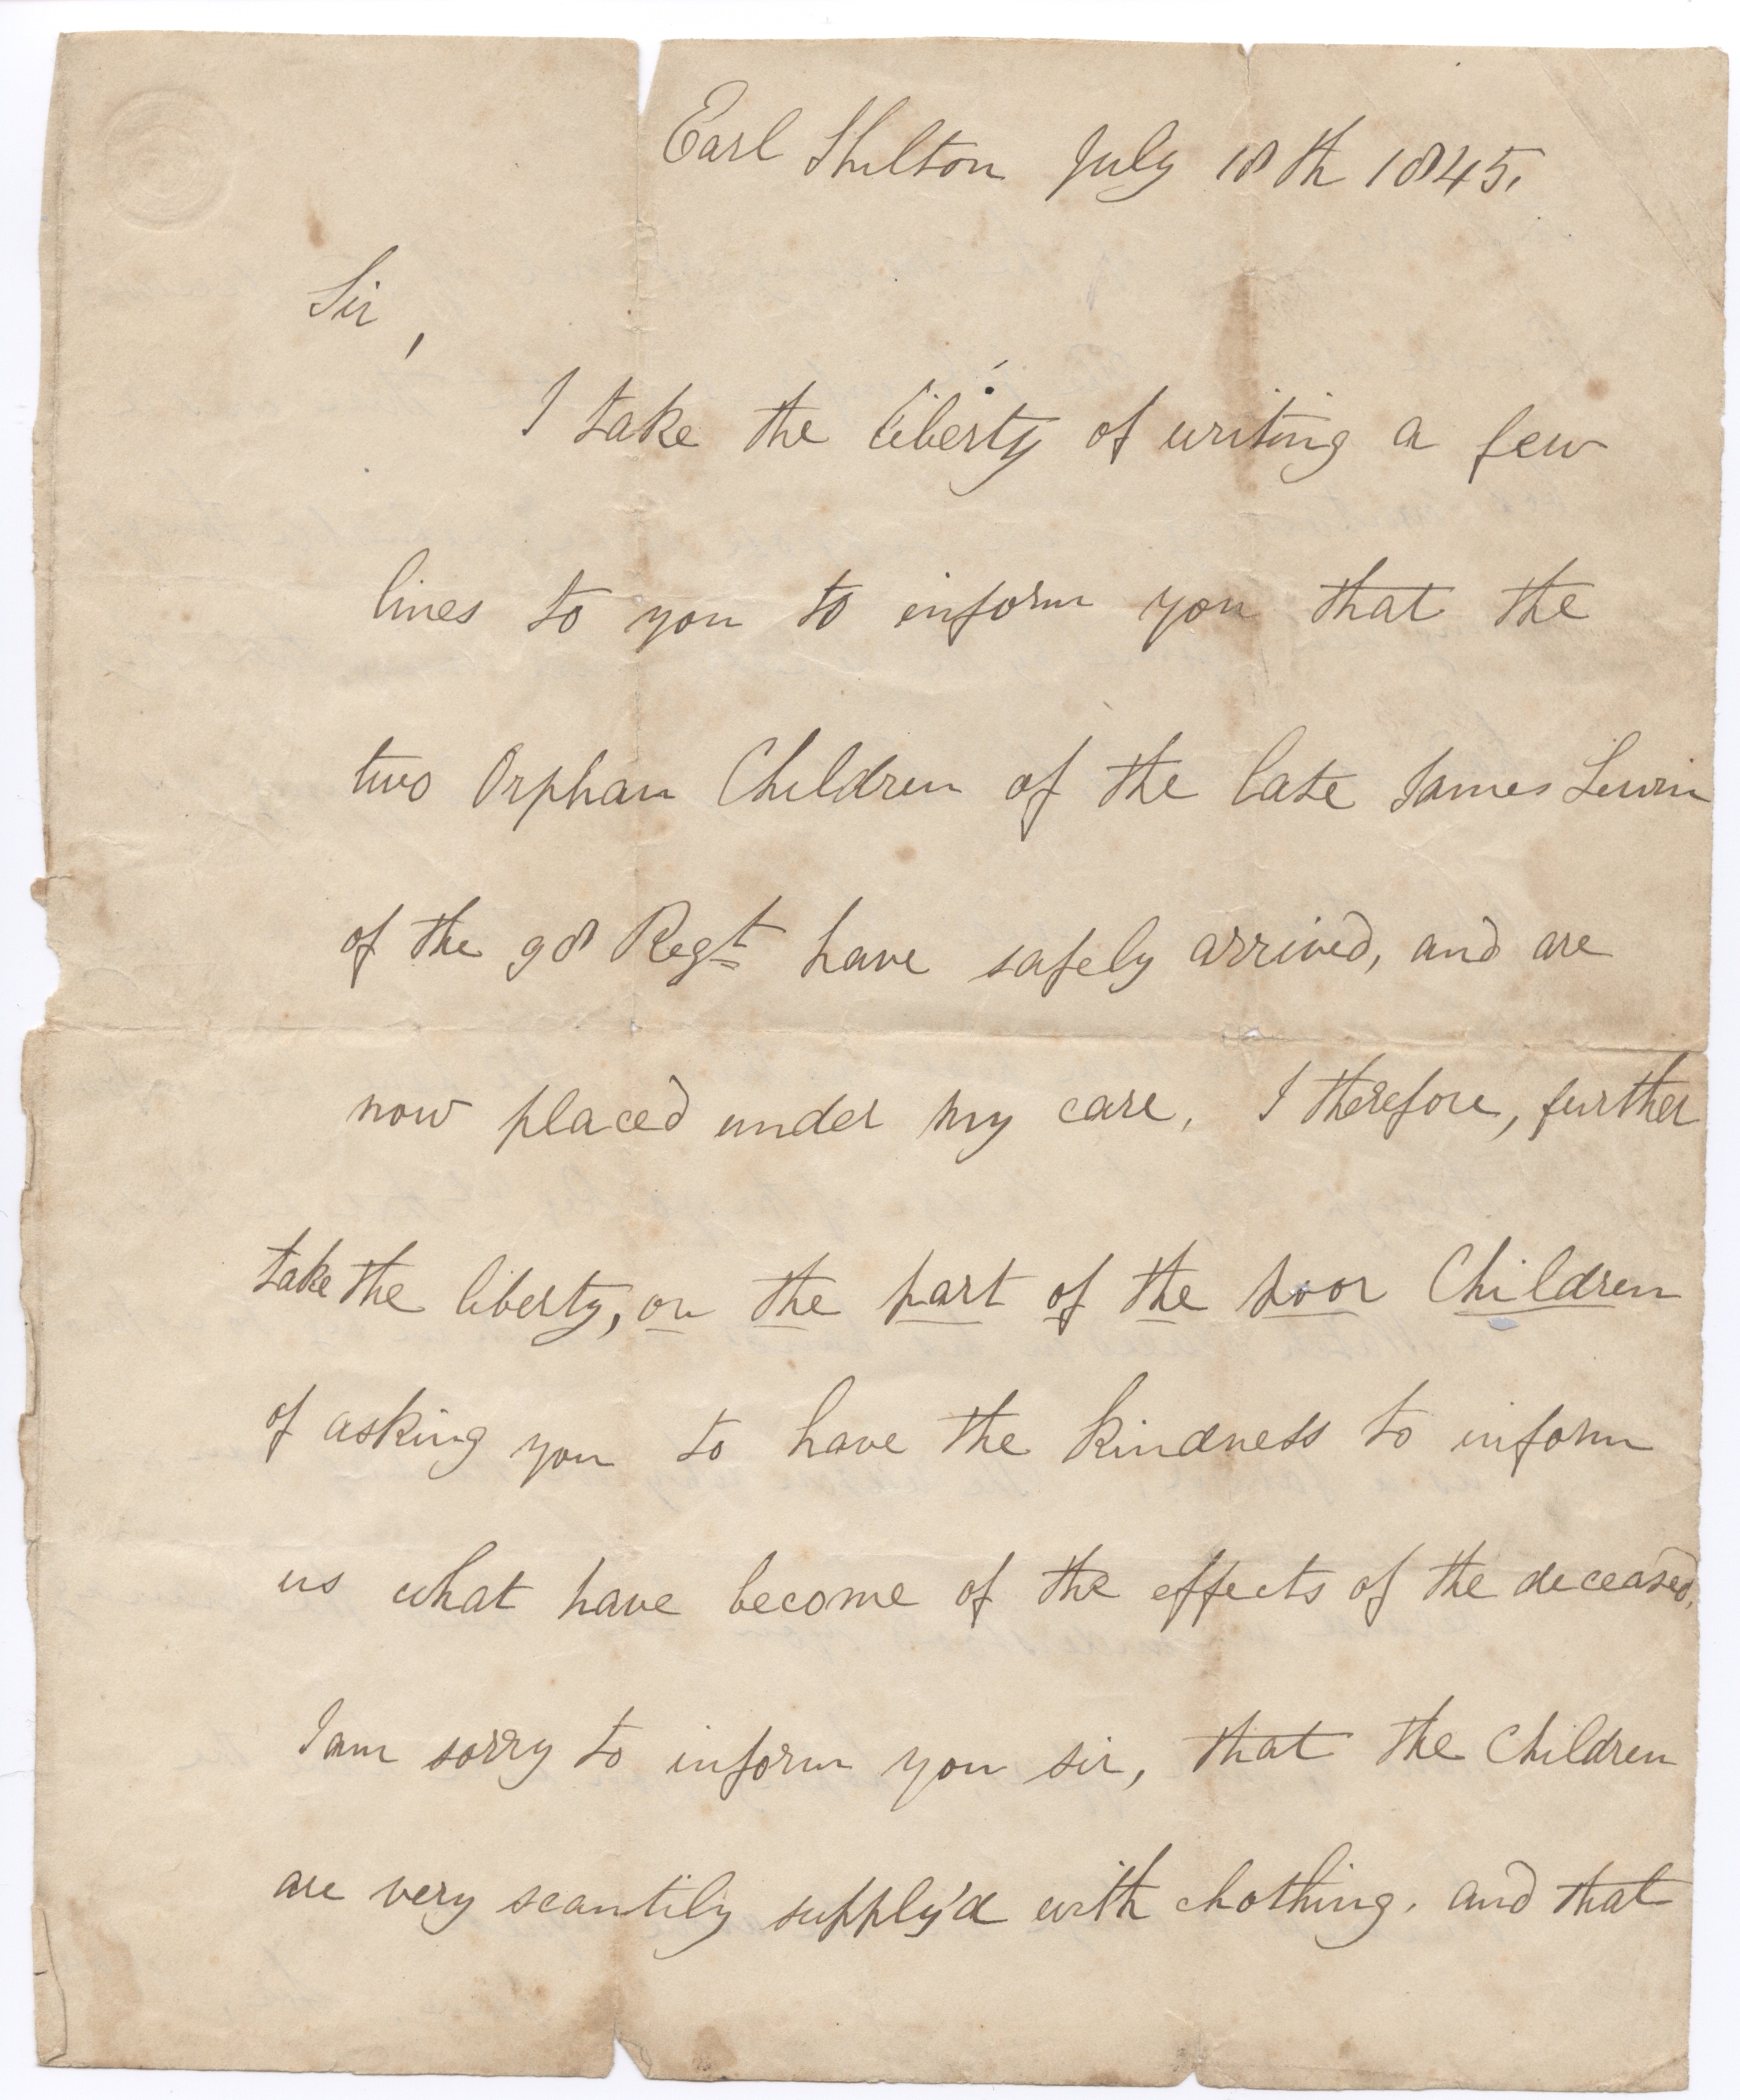 Earl Shilton July 18th 1845.
Sir,
I take the liberty of writing a few
lines to you to inform you that the
two Orphan Children of the late James Lewin
of the 98 Regt have safely arrived, and are
now placed under my care. I therefore, further
take the liberty, on the part of the poor Children
of asking you to have the kindness to inform
us what have become of the effects of the deceased,
I am sorry to inform you sir, that the Children
are very scantily supply'd with clothing. and that